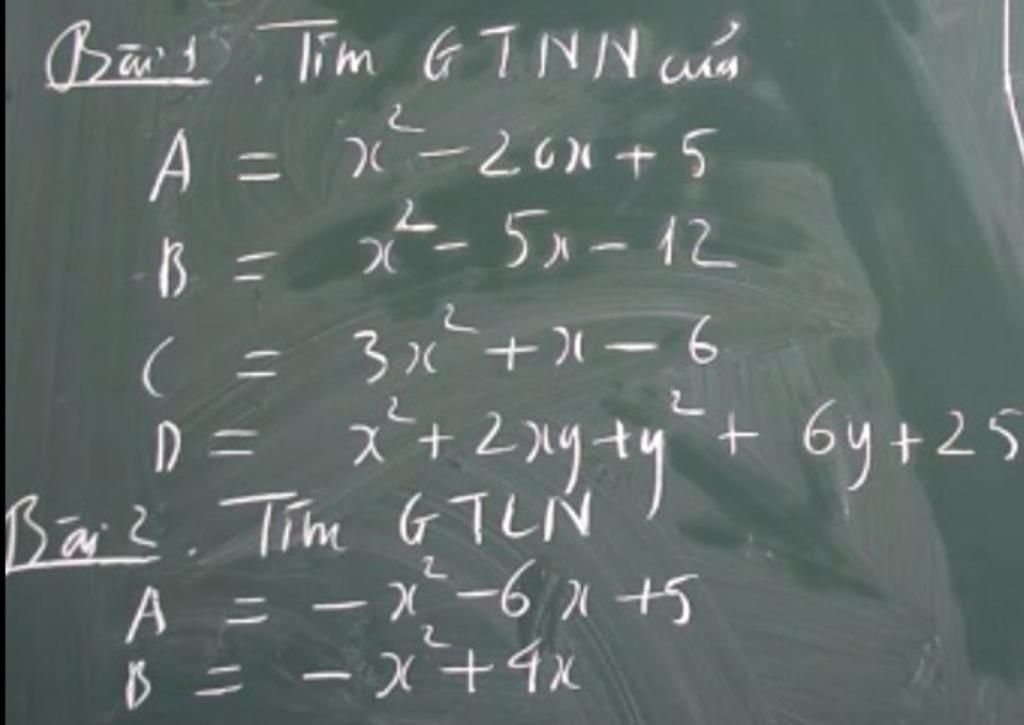 Bài 1. Tìm GTNN của
A = x² - 20x + 5
B = x² - 5x - 12
C = 3x² + x - 6
D = x² + 2xy + y² + 6y + 25
Bài 2. Tìm GTLN
A = - x² - 6x + 5
B = - x² + 4x